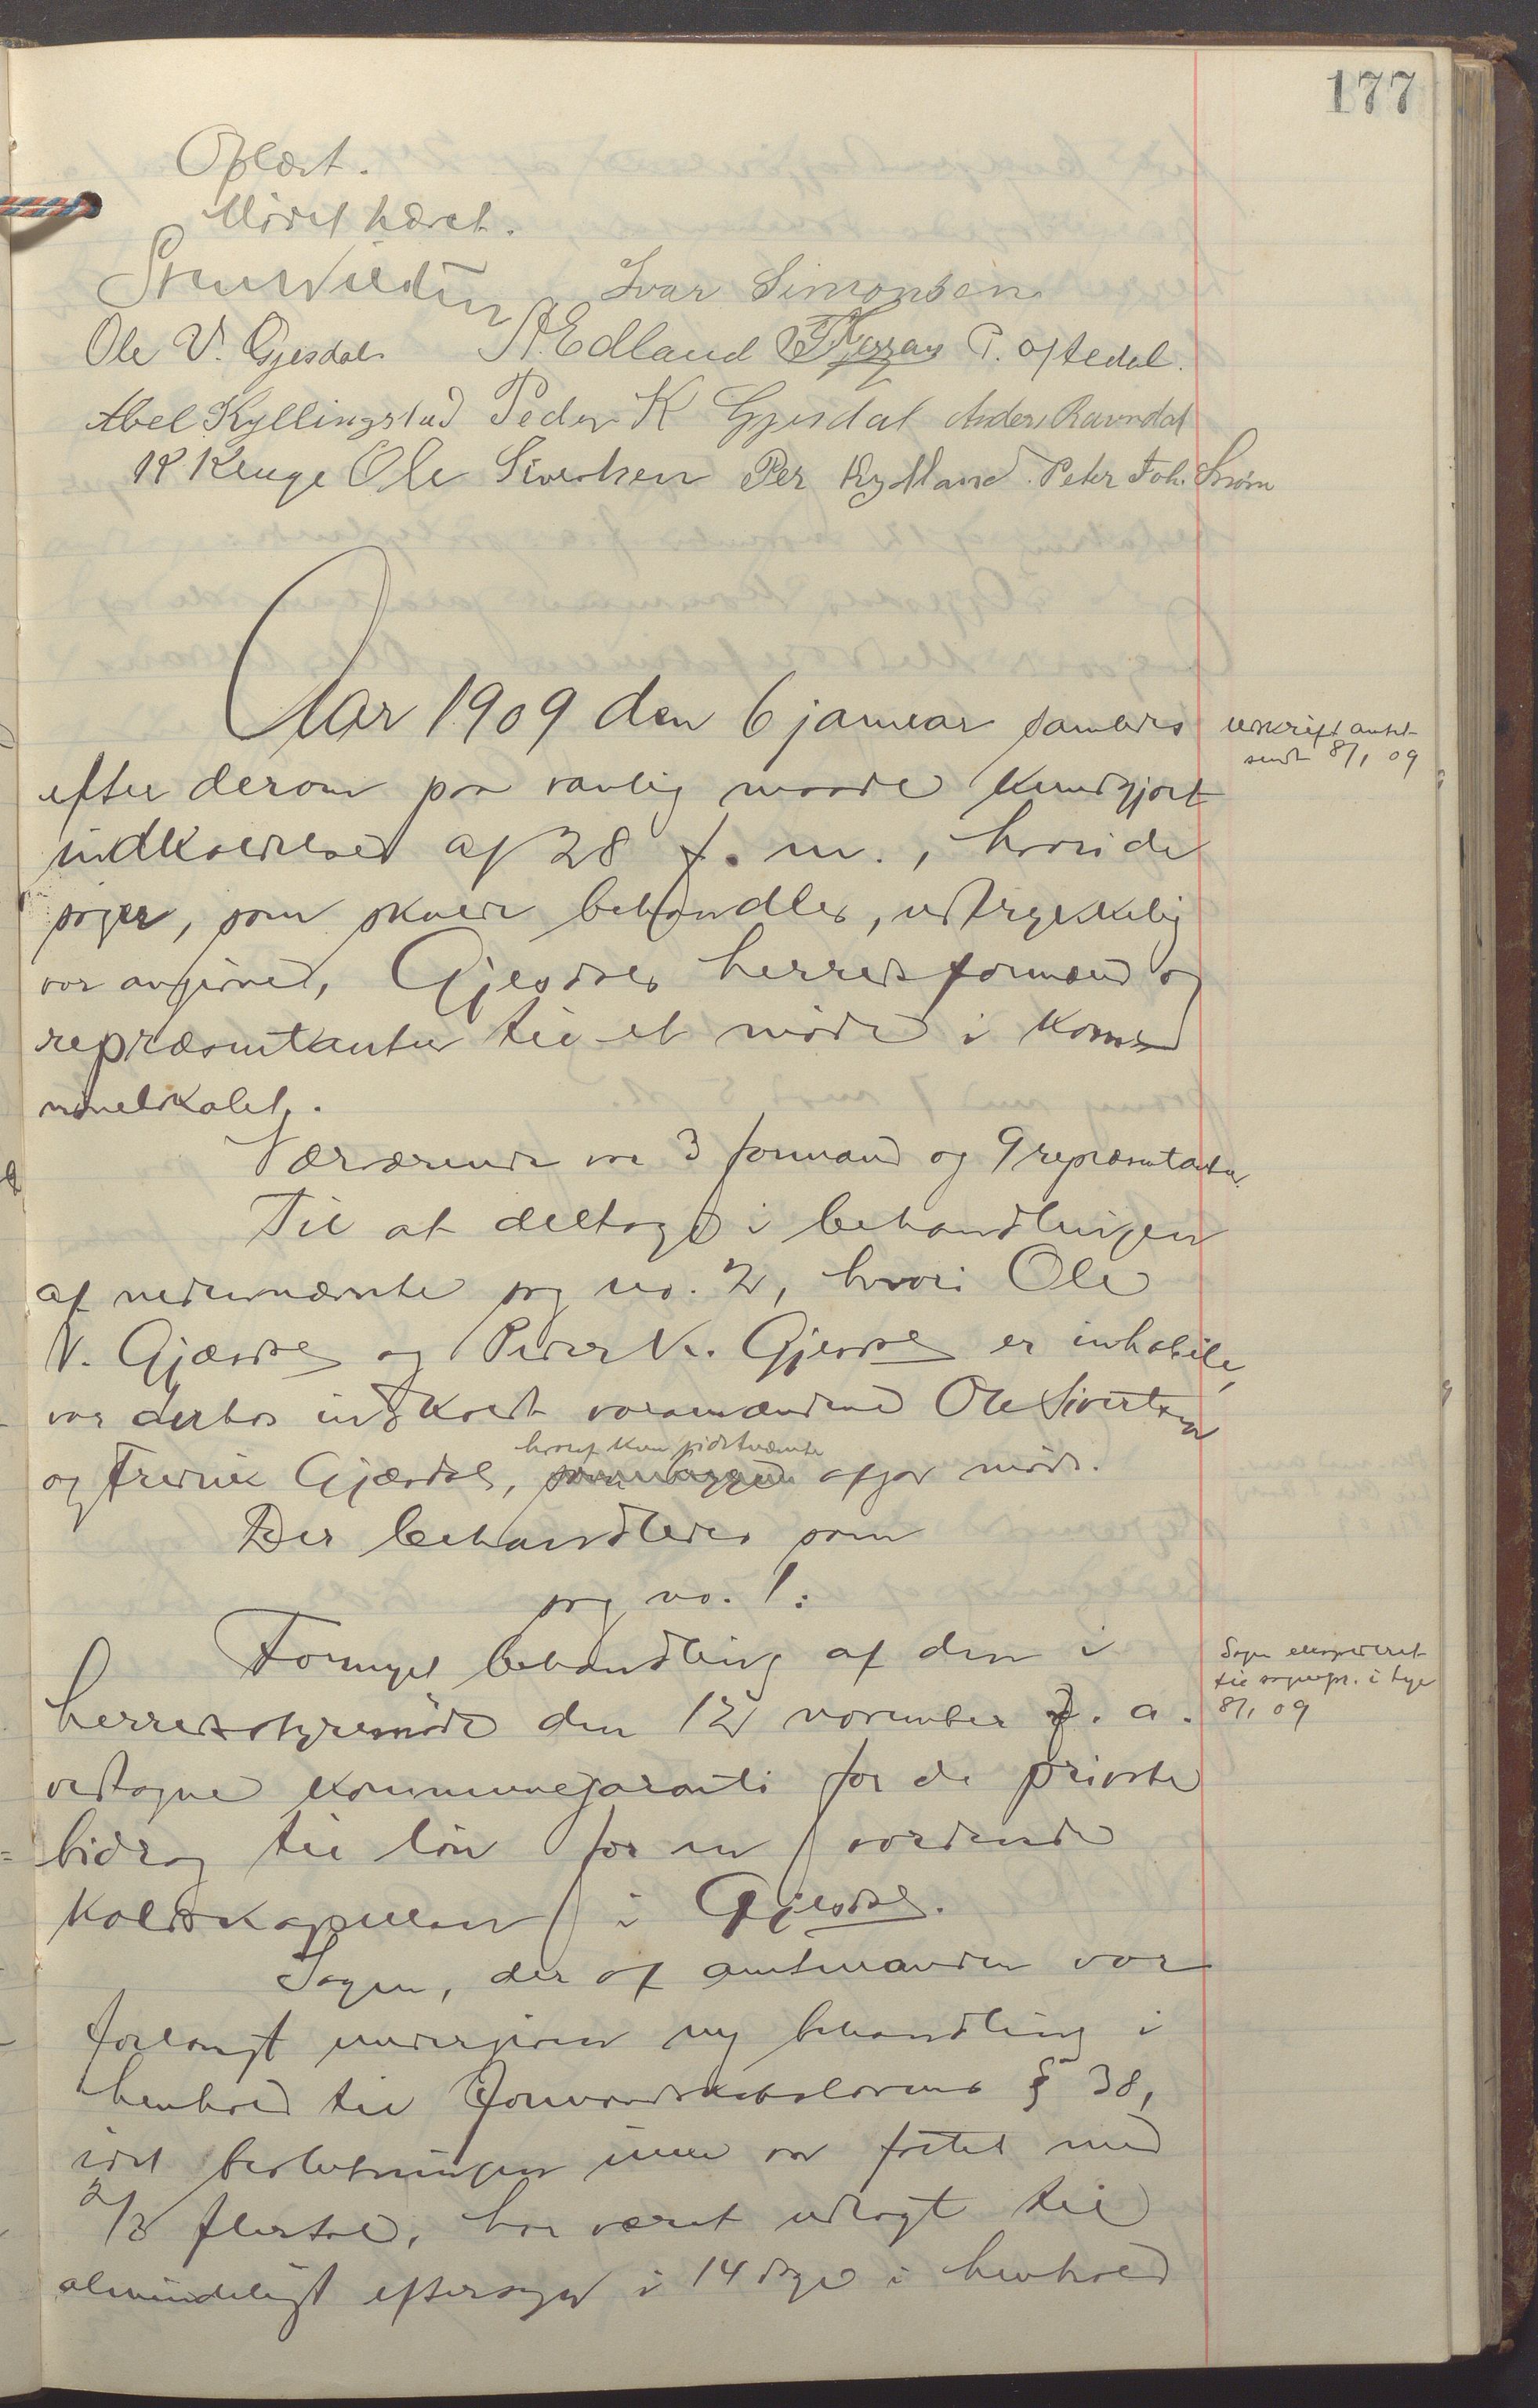 177
Oplæst.
Mødet hævet.
Ivar Simonsen
Ole V. Gjesdal. A. Edland T. Oftedal.
Abel Kyllingstad Peder K Gjesdal Anders Ravndal
Ole Sivertsen Per Rydland. Peter Joh.
Aar 1909 den 6 januar samledes
efter derom paa vanlig maade kundgjort
indkaldelse af 28 f. m., hvori de
sager, som skulde behandles, udtrykkelig
var angivne, Gjesdals herreds formænd og
repræsentanter til et møde i kom-
munelokalet.
Nærværende var 3 formænd og 9 repræsentanter.
Til at deltage i behandlingen
af nedennævnte sag no. 2, hvori Ole
V. Gjæsdal og Peder K. Gjesdal er inhabile,
var derhos indkaldt varamændene Ole Sivertsen
hvoraf kun sidstnævnte
og Fredrik Gjæsdal, afgav møde.
Der behandledes som
sag no. 1:
Fornyet behandling af den i
herredsstyremøde den 12 november f. a.
vedtagne kommunegaranti for de private
bidrag til løn for en vordende
kaldskapellan i Gjesdal.
Sagen, der af amtmanden var
forlangt undergivet ny behandling i
henhold til formandskabslovens § 38,
idet beslutningen ikke var fattet med
2/3 flertal, har været udlagt til
almindeligt eftersyn i 14 dage i henhold
Udskrift amtet
sendt 8/1 09
Sagen ekspederet
til sognepr. i Lye
8/1 09